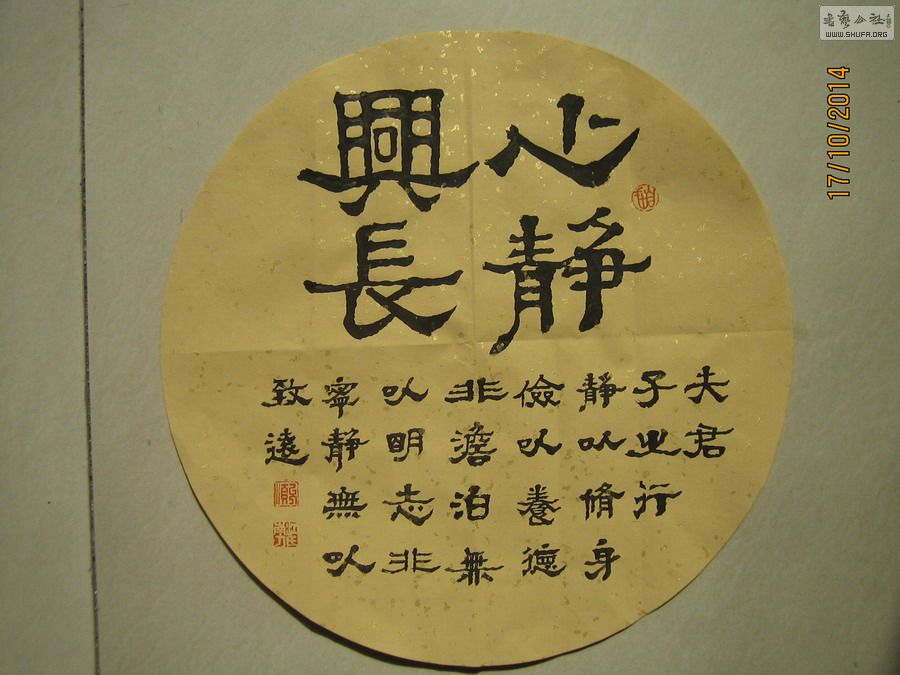 心靜
興長
夫君
子之行
靜以脩身
儉以養德
非澹泊無
以明志非
寧靜無以
致遠
17/10/2014
WWW.SHUFA.ORG